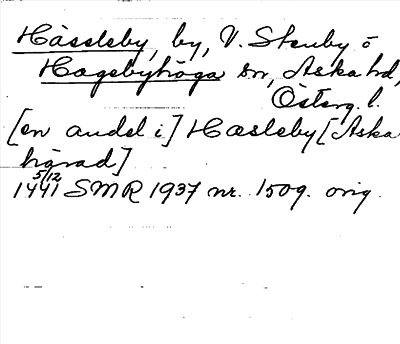 Hässleby, by, V. Stenby o
Hagebyhöga sn, Aska hd,
Österg. l.
[en andel i] Hæsleby [Aska
härad]
5/12
1441 SMR 1937 nr. 1509. orig.